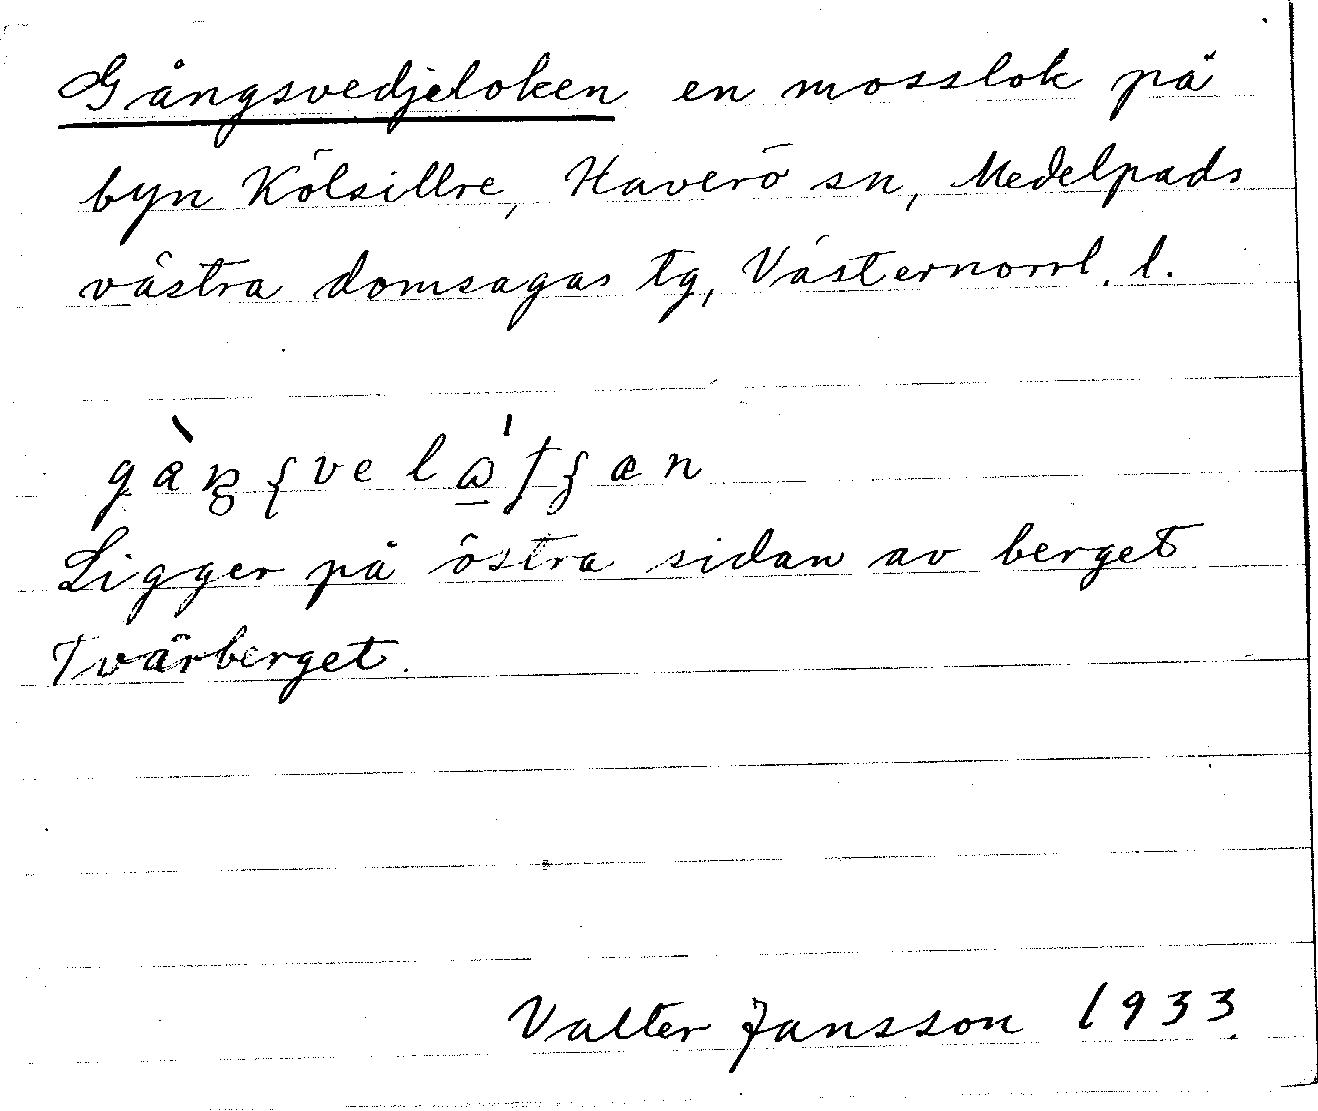 Gångsvedjeloken en mosslok på
byn Kölsillre, Haverö sn, Medelpads
västra domsagas tg, Västernorrl. l.
Ligger på östra sidan av berget
Tvärberget.
Valter Jansson 1933.